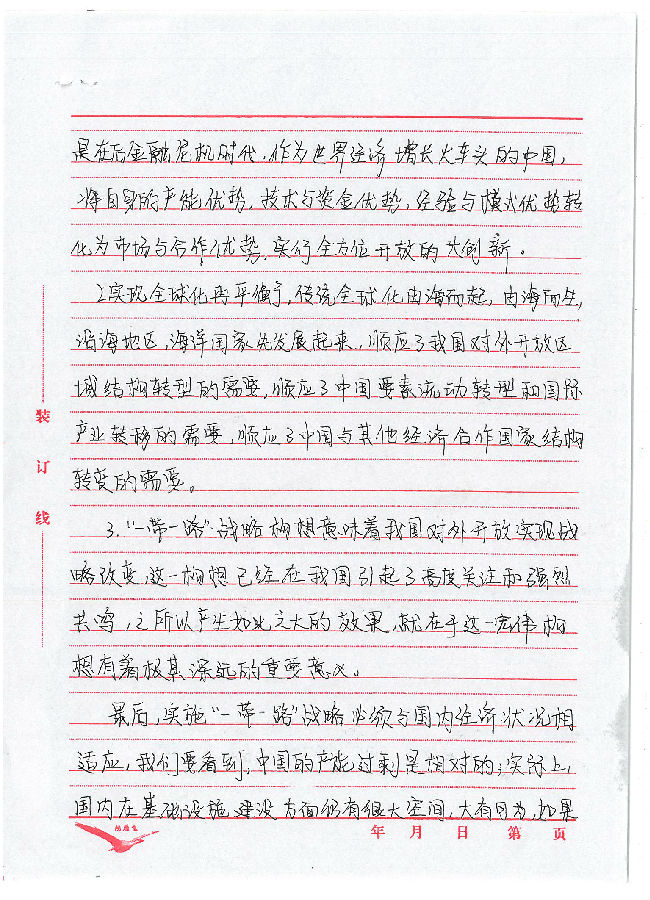 是在后金融危机时代,作为世界经济增长火车头的中国,
将自身的产能优势,技术与资金优势,经验与模式优势转
化为市场与合作优势,实行全方位开放的大创新。
2.实现全球化再平衡,传统全球化由海而起,由海而生,
沿海地区,海洋国家先发展起来,顺应了我国对外开放区
域结构转型的需要,顺应了中国要素流动转型和国际
产业转移的需要,顺应了中国与其他经济合作国家结构
转变的需要。
3.“一带一路”战略构想意味着我国对外开放实现战
略改变,这一构想已经在我国引起了高度关注和强烈
共鸣,之所以产生如此之大的效果,就在于这一宏伟构
想有着极其深远的重要意义。
最后,实施“一带一路”战略必须与国内经济状况相
适应,我们要看到,中国的产能过剩是相对的;实际上,
国内在基础设施建设方面仍有很大空间,大有用为,如果
装
订
线
年 月 日 第 页